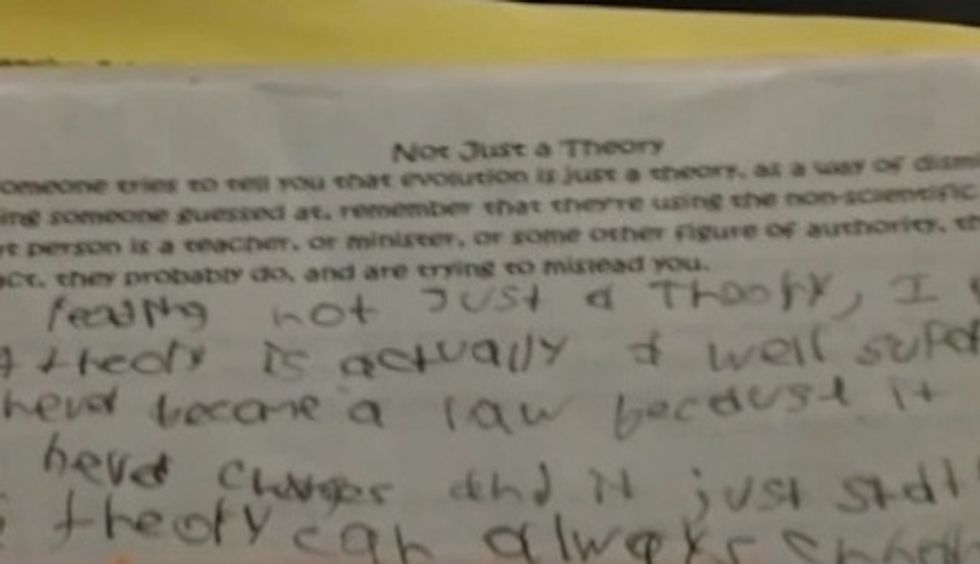 Not Just a Theory
omeone tries to tell you that evolution is just a theory, as a way of dism
ing someone guessed at, remember that they're using the non-scientific
t person is a teacher, or minister, or some other figure of authority, th
act, they probably do, and are trying to mislead you.
reading not Just a Theory, I
theory is actually a well
never become a law because it
never changes and it just
theory can always